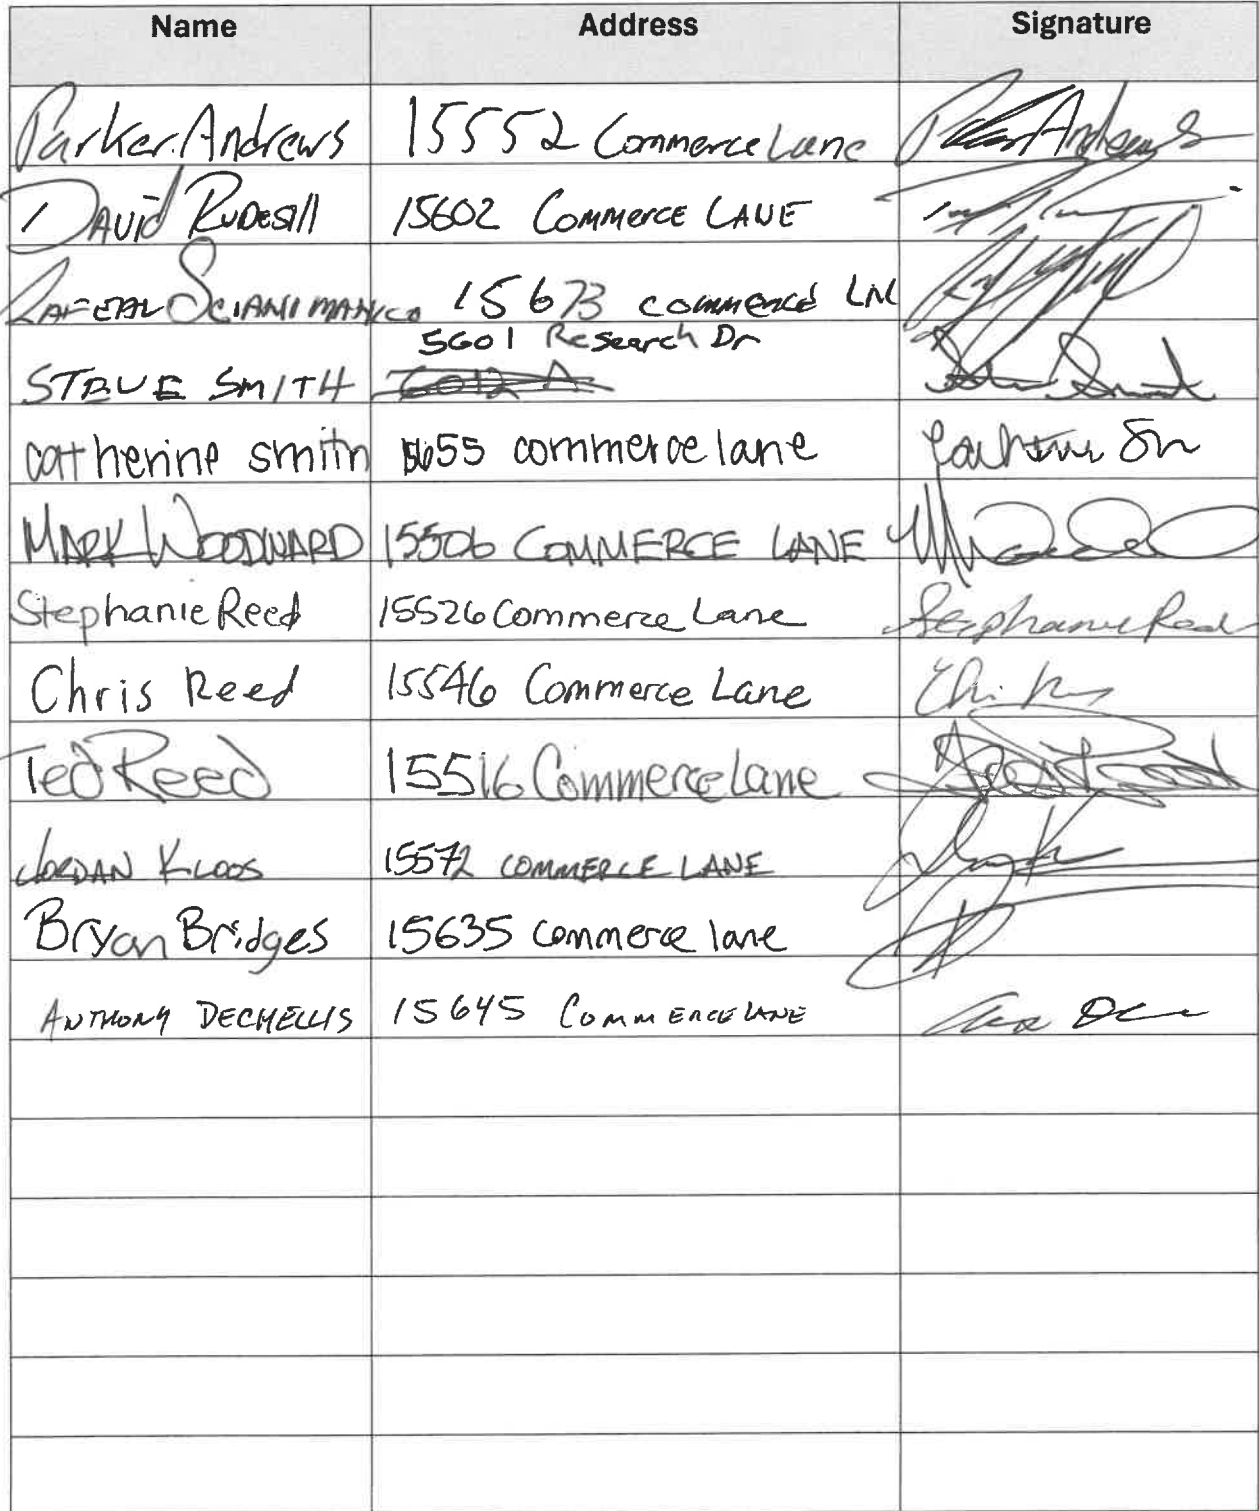 Name Address Signature
Parker Andrews 15552 Commerce Lane Parker Andrews
DAVID RUDESill 15602 COMMERCE LANE
RAFEAL SCIANIMANICO 15673 commerce LN
5601 Research Dr
STEVE SMITH
catherine smith 15655 commerce lane
MARK WOODWARD 15506 COMMERCE LANE
Stephanie Reed 15526 Commerce Lane Stephanie Reed
Chris Reed 15546 Commerce Lane
Ted Reed 15516 Commerce Lane
JORDAN KLOOS 15572 COMMERCE LANE
Bryan Bridges 15635 commerce lane
ANTHONY DECHELLIS 15645 COMMERCE LANE